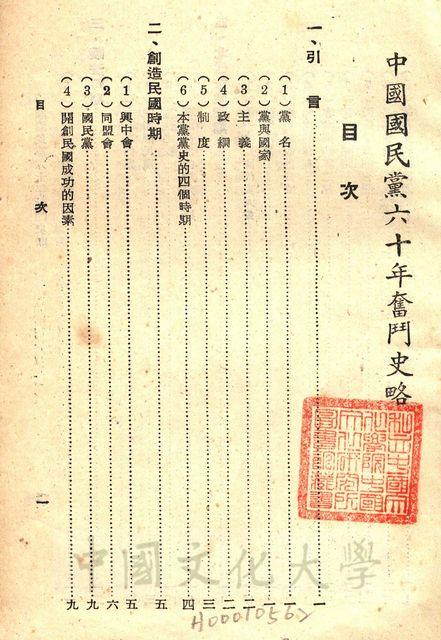 中國國民黨六十年奮鬥史略
目次
一、引言……一
（1）黨名……一
（2）黨與國家……一
（3）主義……二
（4）政綱……二
（5）制度……三
（6）本黨黨史的四個時期……四
二、創造民國時期……五
（1）興中會……五
（2）同盟會……六
（3）國民黨……九
（4）開創民國成功的因素……九
目次
一
中國文化大學
H00010562